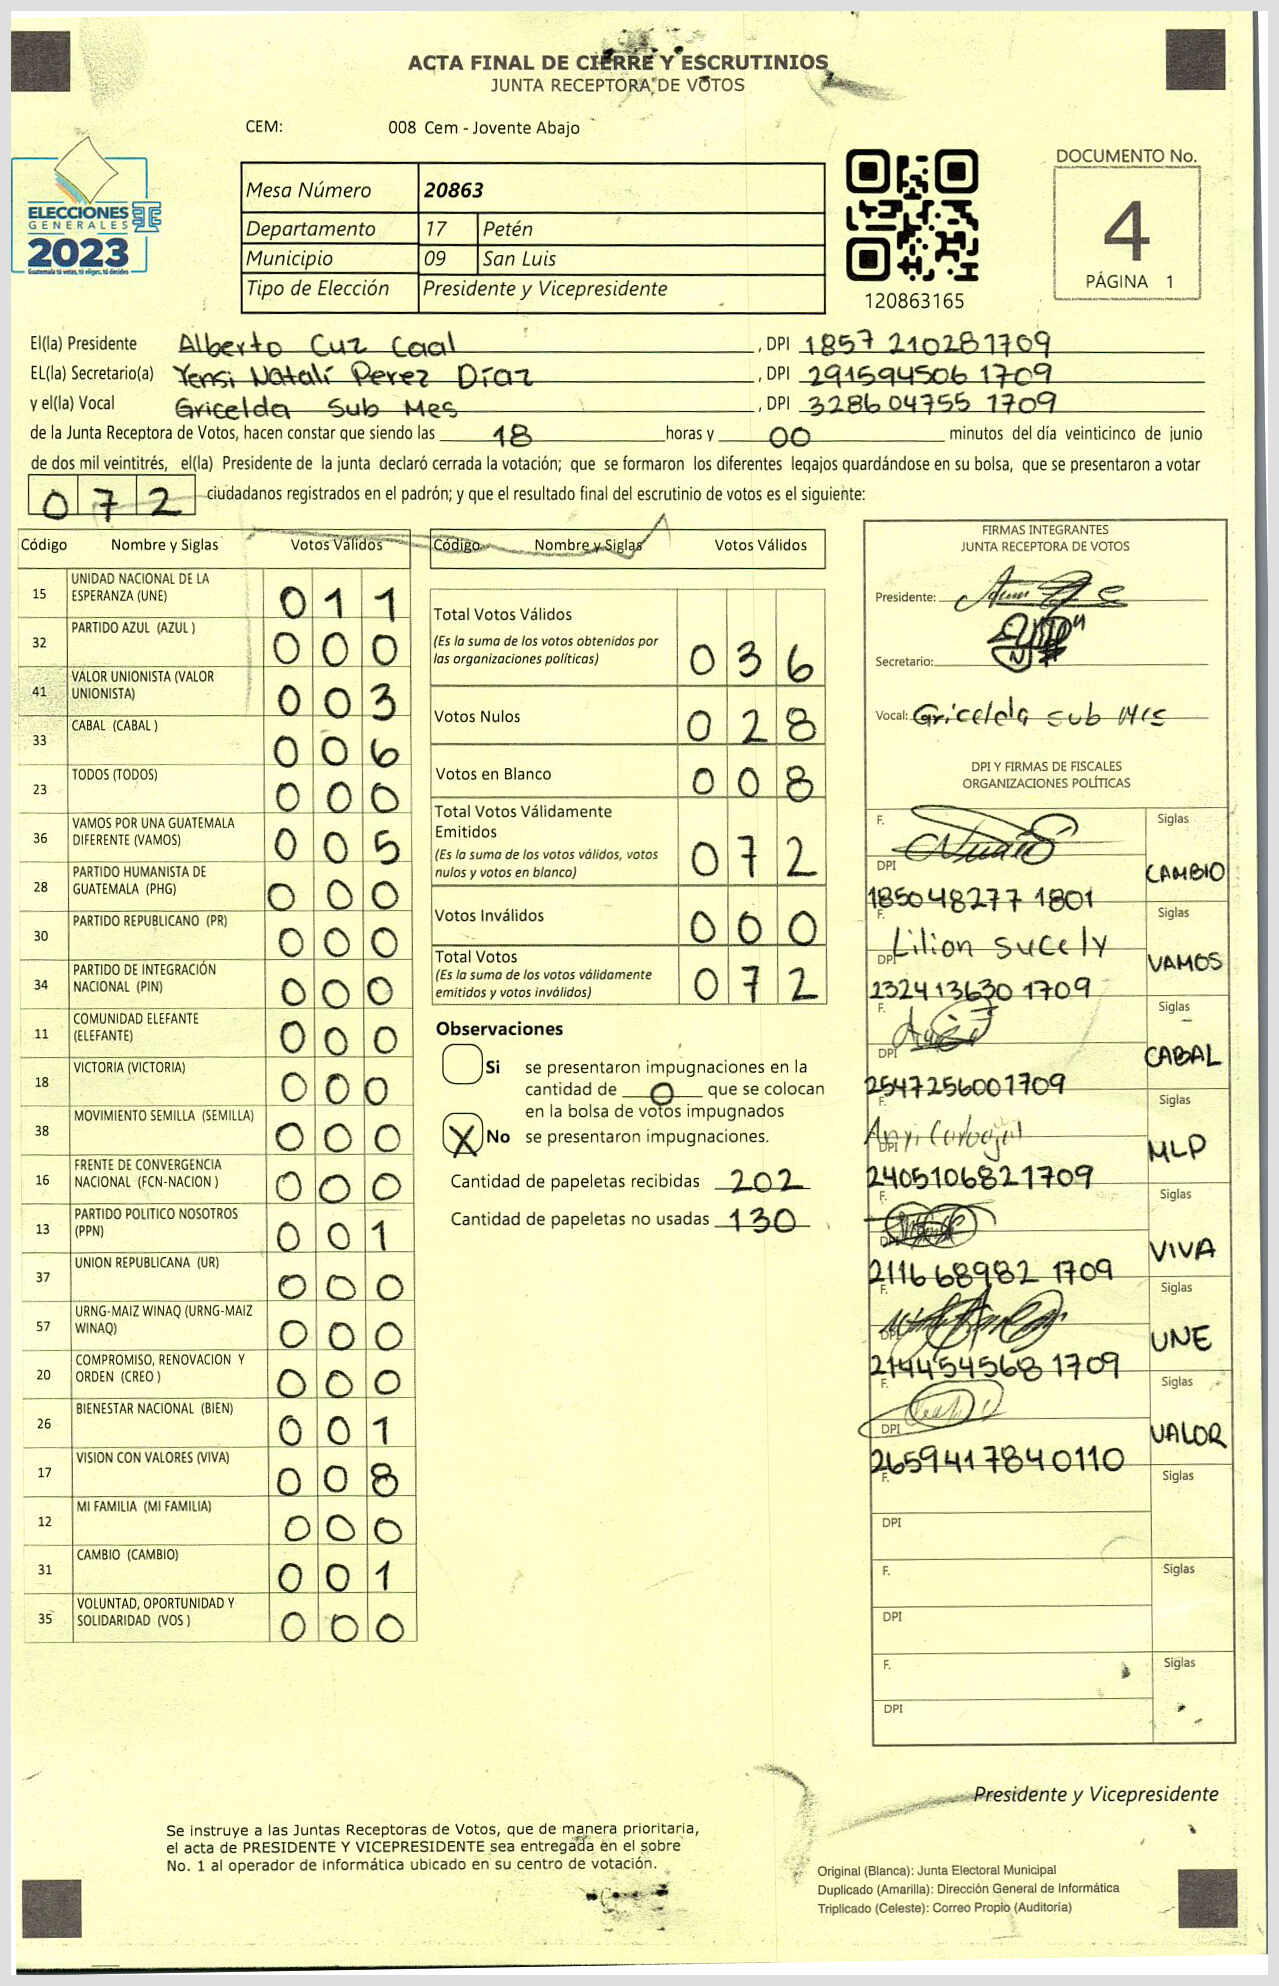 ACTA FINAL DE CIERRE Y ESCRUTINIOS
JUNTA RECEPTORA DE VOTOS
CEM: 008 Cem - Jovente Abajo
ELECCIONES
GENERALES
2023
Guatemala tú votas, tú eliges, tú decides
Mesa Número 20863
Departamento 17 Petén
Municipio 09 San Luis
Tipo de Elección Presidente y Vicepresidente
120863165
DOCUMENTO No.
4
PÁGINA 1
El(la) Presidente Alberto Cuz Caal, DPI 1857 21028 1709
EL(la) Secretario(a) Yensi Natalí Perez Díaz, DPI 291594506 1709
y el(la) Vocal Gricelda Sub Mes, DPI 328604755 1709
de la Junta Receptora de Votos, hacen constar que siendo las 18 horas y 00 minutos del día veinticinco de junio
de dos mil veintitrés, el(la) Presidente de la junta declaró cerrada la votación; que se formaron los diferentes legajos guardándose en su bolsa, que se presentaron a votar
072 ciudadanos registrados en el padrón; y que el resultado final del escrutinio de votos es el siguiente:
Código Nombre y Siglas Votos Válidos
15 UNIDAD NACIONAL DE LA ESPERANZA (UNE) 011
32 PARTIDO AZUL (AZUL ) 000
41 VALOR UNIONISTA (VALOR UNIONISTA) 003
33 CABAL (CABAL ) 006
23 TODOS (TODOS) 000
36 VAMOS POR UNA GUATEMALA DIFERENTE (VAMOS) 005
28 PARTIDO HUMANISTA DE GUATEMALA (PHG) 000
30 PARTIDO REPUBLICANO (PR) 000
34 PARTIDO DE INTEGRACIÓN NACIONAL (PIN) 000
11 COMUNIDAD ELEFANTE (ELEFANTE) 000
18 VICTORIA (VICTORIA) 000
38 MOVIMIENTO SEMILLA (SEMILLA) 000
16 FRENTE DE CONVERGENCIA NACIONAL (FCN-NACION ) 000
13 PARTIDO POLITICO NOSOTROS (PPN) 001
37 UNION REPUBLICANA (UR) 000
57 URNG-MAIZ WINAQ (URNG-MAIZ WINAQ) 000
20 COMPROMISO, RENOVACION Y ORDEN (CREO ) 000
26 BIENESTAR NACIONAL (BIEN) 001
17 VISION CON VALORES (VIVA) 008
12 MI FAMILIA (MI FAMILIA) 000
31 CAMBIO (CAMBIO) 001
35 VOLUNTAD, OPORTUNIDAD Y SOLIDARIDAD (VOS ) 000
Código Nombre y Siglas Votos Válidos
Total Votos Válidos
(Es la suma de los votos obtenidos por
las organizaciones políticas) 036
Votos Nulos 028
Votos en Blanco 008
Total Votos Válidamente
Emitidos
(Es la suma de los votos válidos, votos
nulos y votos en blanco) 072
Votos Inválidos 000
Total Votos
(Es la suma de los votos válidamente
emitidos y votos inválidos) 072
Observaciones
Si se presentaron impugnaciones en la
cantidad de 0 que se colocan
en la bolsa de votos impugnados
X No se presentaron impugnaciones.
Cantidad de papeletas recibidas 202
Cantidad de papeletas no usadas 130
FIRMAS INTEGRANTES
JUNTA RECEPTORA DE VOTOS
Presidente:
Secretario:
Vocal: Gricelda sub Mes
DPI Y FIRMAS DE FISCALES
ORGANIZACIONES POLÍTICAS
F. Siglas
DPI CAMBIO
185048277 1801
F. Lilion Sucely Siglas
DPI VAMOS
232413630 1709
F. Siglas
DPI CABAL
254725600 1709
F. Siglas
DPI MLP
240510682 1709
F. Siglas
DPI VIVA
211668982 1709
F. Siglas
DPI UNE
214454568 1709
F. Siglas
DPI VALOR
265941784 0110
F. Siglas
DPI
F. Siglas
DPI
F. Siglas
DPI
Presidente y Vicepresidente
Se instruye a las Juntas Receptoras de Votos, que de manera prioritaria,
el acta de PRESIDENTE Y VICEPRESIDENTE sea entregada en el sobre
No. 1 al operador de informática ubicado en su centro de votación.
Original (Blanca): Junta Electoral Municipal
Duplicado (Amarilla): Dirección General de Informática
Triplicado (Celeste): Correo Propio (Auditoría)